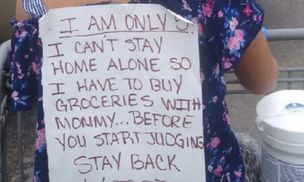 I AM ONLY
I CAN'T STAY
HOME ALONE SO
I HAVE TO BUY
GROCERIES WITH
MOMMY...BEFORE
YOU START JUDGING
STAY BACK